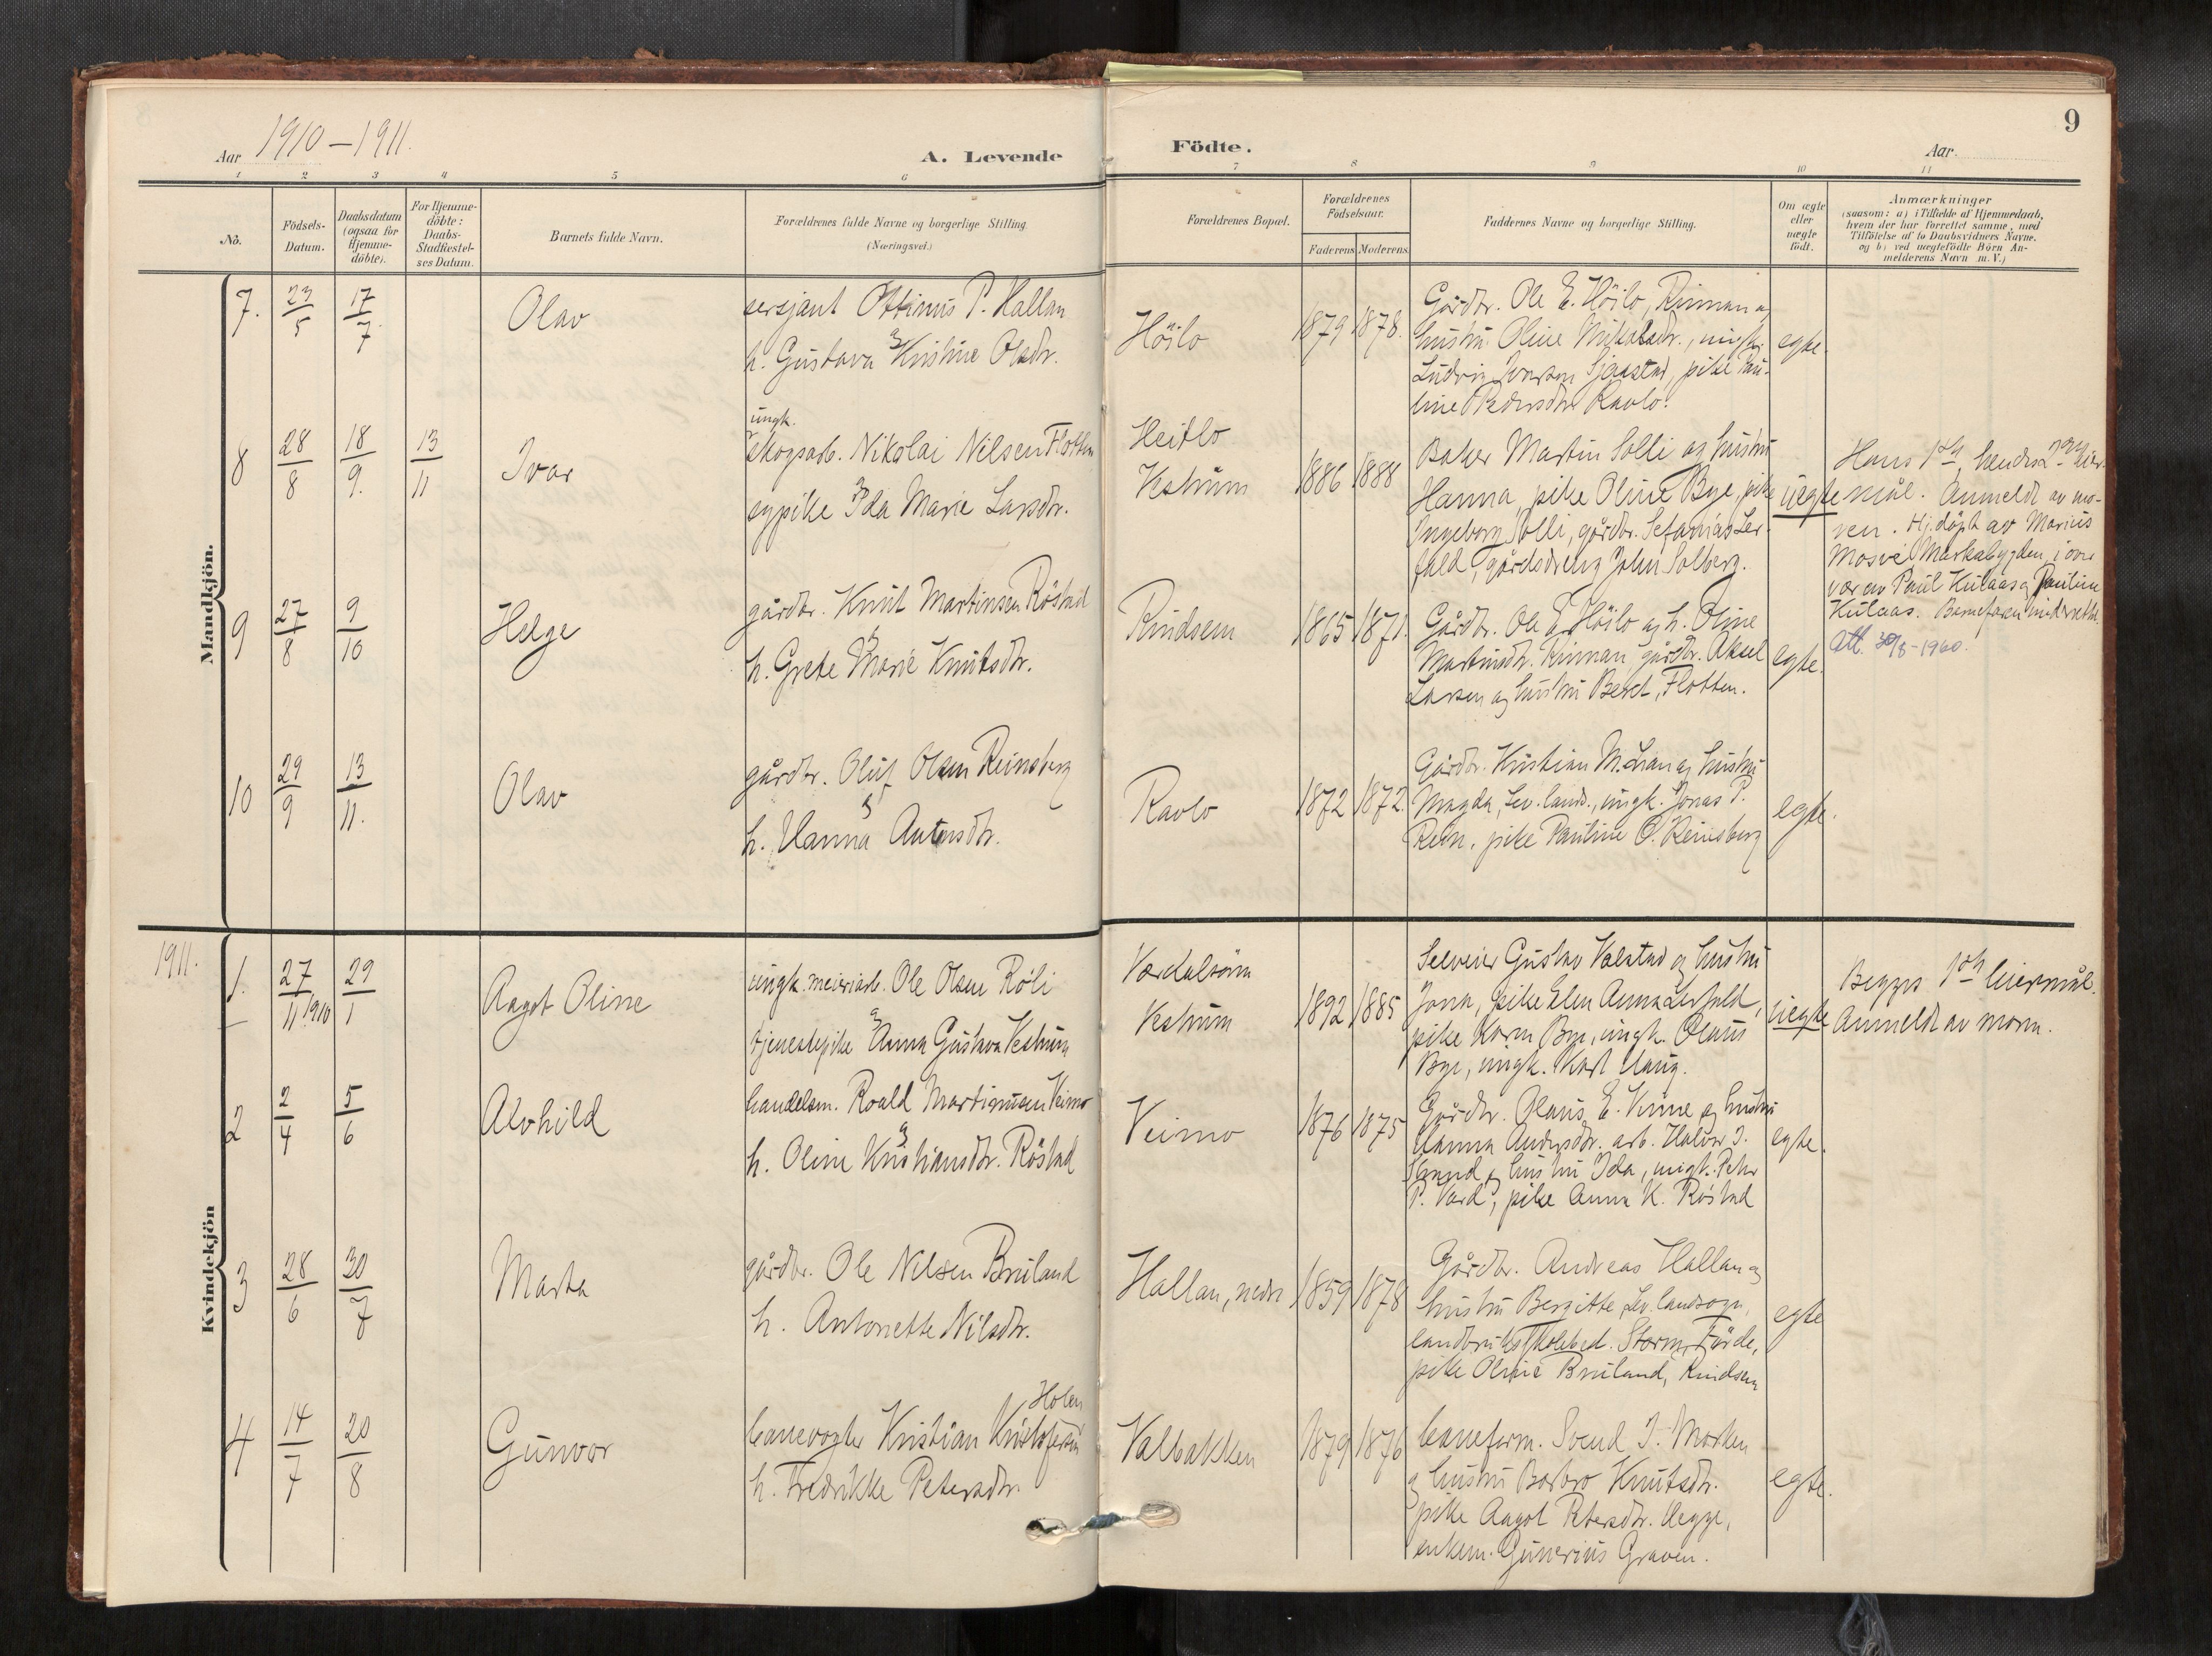 9
Aar 1910–1911.
A. Levende
Födte.
Aar.
1 2 3 4 5 6 7 8 9 10 11
No.
Födsels-
Datum.
Daabsdatum
(ogsaa for
Hjemme-
döbte).
For Hjemme-
döbte:
Daabs-
Stadfæstel-
ses Datum.
Barnets fulde Navn.
Forældrenes fulde Navne og borgerlige Stilling
(Næringsvei.)
Forældrenes Bopæl.
Forældrenes
Födselsaar.
Faderens
Moderens
Faddernes Navne og borgerlige Stilling.
Om ægte
eller
uægte
födt.
Anmærkninger
(saasom: a) i Tilfælde af Hjemmedaab,
hvem der har forrettet samme, med
Tilföielse af to Daabsvidners Navne,
og b) ved uægtefödte Börn An-
melderens Navn m. V.)
Mandkjön.
7. 23/5 17/7. Olav
sersjant Ottinus P. Hallan
og
h. Gustava Kristine Olsdtr.
Höilo 1879 1878.
Gårdbr. Ole E. Höilo, Rinnan og
hustru Oline Nikolaidtr., ungk.
Ludvig Iversen Sjaastad, pike Pau-
line Pedersdtr. Ravlo.
egte.
8 28/8 18/9. 13/11 Ivar
ungk.
skogsarb. Nikolai Nilsen Flotten
og
sypike Ida Marie Larsdtr.
Heitlo
Vestrum 1886 1888
Baker Martin Solli og hustru
Hanna, pike Oline Bye, pike
Ingeborg Solli, gårdbr. Sefanias Ler-
fald, gårdsdreng John Solberg.
uegte
Hans 1ste, hendes 2det leier-
mål. Anmeldt av mo-
ren. Hj.döpt av Marius
Mosve Markabygden, i over
vær av Paul Kulaas og Pauline
Kulaas. Barnefaren underrettet.
Att. 30/8-1960.
9 27/8 9/10 Helge
gårdbr. Knut Martinsen Röstad
og
h. Grete Marie Knutsdtr.
Rindsem 1865 1871.
Gårdbr. Ole E. Höilo og h. Oline
Martinsdtr. Rinnan, gårdbr. Aksel
Larsen og hustru Beret, Flotten.
egte.
10 29/9 13/11. Olav
gårdbr. Oluf Olsen Reinsberg
og
h. Hanna Antonsdtr.
Ravlo 1872 1872.
Gårdbr. Kristian M. Lian og hustru
Magda, Lev. lands., ungk. Jonas P.
pike Pauline O. Reinsberg
egte.
Kvindekjön
1911.
1. 27/11 1910 29/1 Aagot Oline
ungk. meieriarb. Ole Olsen Röli
og
tjenestepike Anna Gustava Vestrum
Værdalsören
Vestrum 1892 1885
Selveier Gustav Valstad og hustru
Jona, pike Elen Anna Lerfald,
pike Karen Bye, ungk. Olaus
Bye, ungk. Karl Haug.
uegte
Begges 1ste leiermål.
Anmeldt av moren.
2 2/4 5/6 Alvhild
handelsm. Roald Martinusen Veimo
og
h. Oline Kristiansdtr. Röstad
Veimo 1876 1875
Gårdbr. Olaus E. Vinne og hustru
Hanna Andersdtr. arb. Halvor J.
Strand og hustru Ida, ungk. Peter
P. Vard, pike Anna K. Röstad
egte.
3 28/6 30/7 Marta
gårdbr. Ole Nilsen Bruland
h. Antonette Nilsdtr.
Hallan, nedre 1859 1878
Gårdbr. Andreas Hallan og
hustru Bergitte, Lev. landsogn,
landbruksskolebest. Storm, Förde,
pike Olivie Bruland, Rindsem
egte
4 14/7 20/8 Gunvor
Holen
banevogter Kristian Kristofersen
h. Fredrikke Petersdtr.
Valbakken 1879 1876
baneform. Svend J. Morken
og hustru Barbro Knutsdtr.
pike Aagot Petersdtr. Hegge,
enkem. Gunerius Graven.
egte.